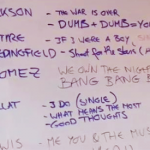 KSON - THE WAR IS OVER
- DUMB + DUMB = YO
TYRE - IF I WERE A BOY
EDINGFIELD - Shoot for the stars
OMEZ - WE OWN THE NIGH
BANG BANG B
LLAT - I DO (SINGLE)
- WHAT MEANS THE MOST
- GOOD THOUGHTS
WIS - ME YOU & THE MUS